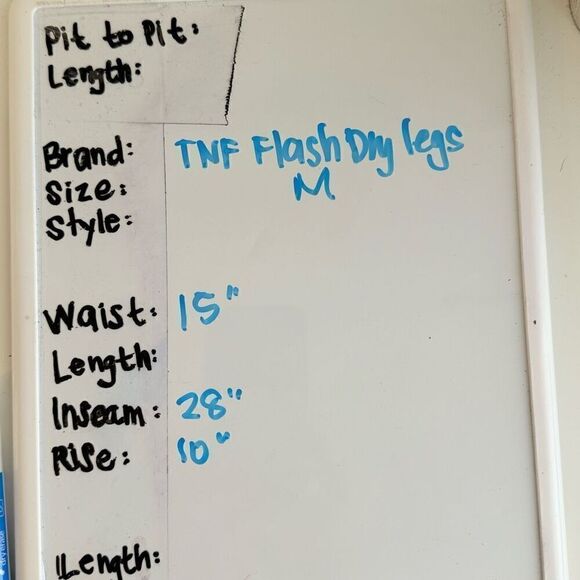 Pit to Pit:
Length:
Brand: TNF Flash Dry legs
Size: M
Style:
Waist: 15"
Length:
Inseam: 28"
Rise: 10"
Length: